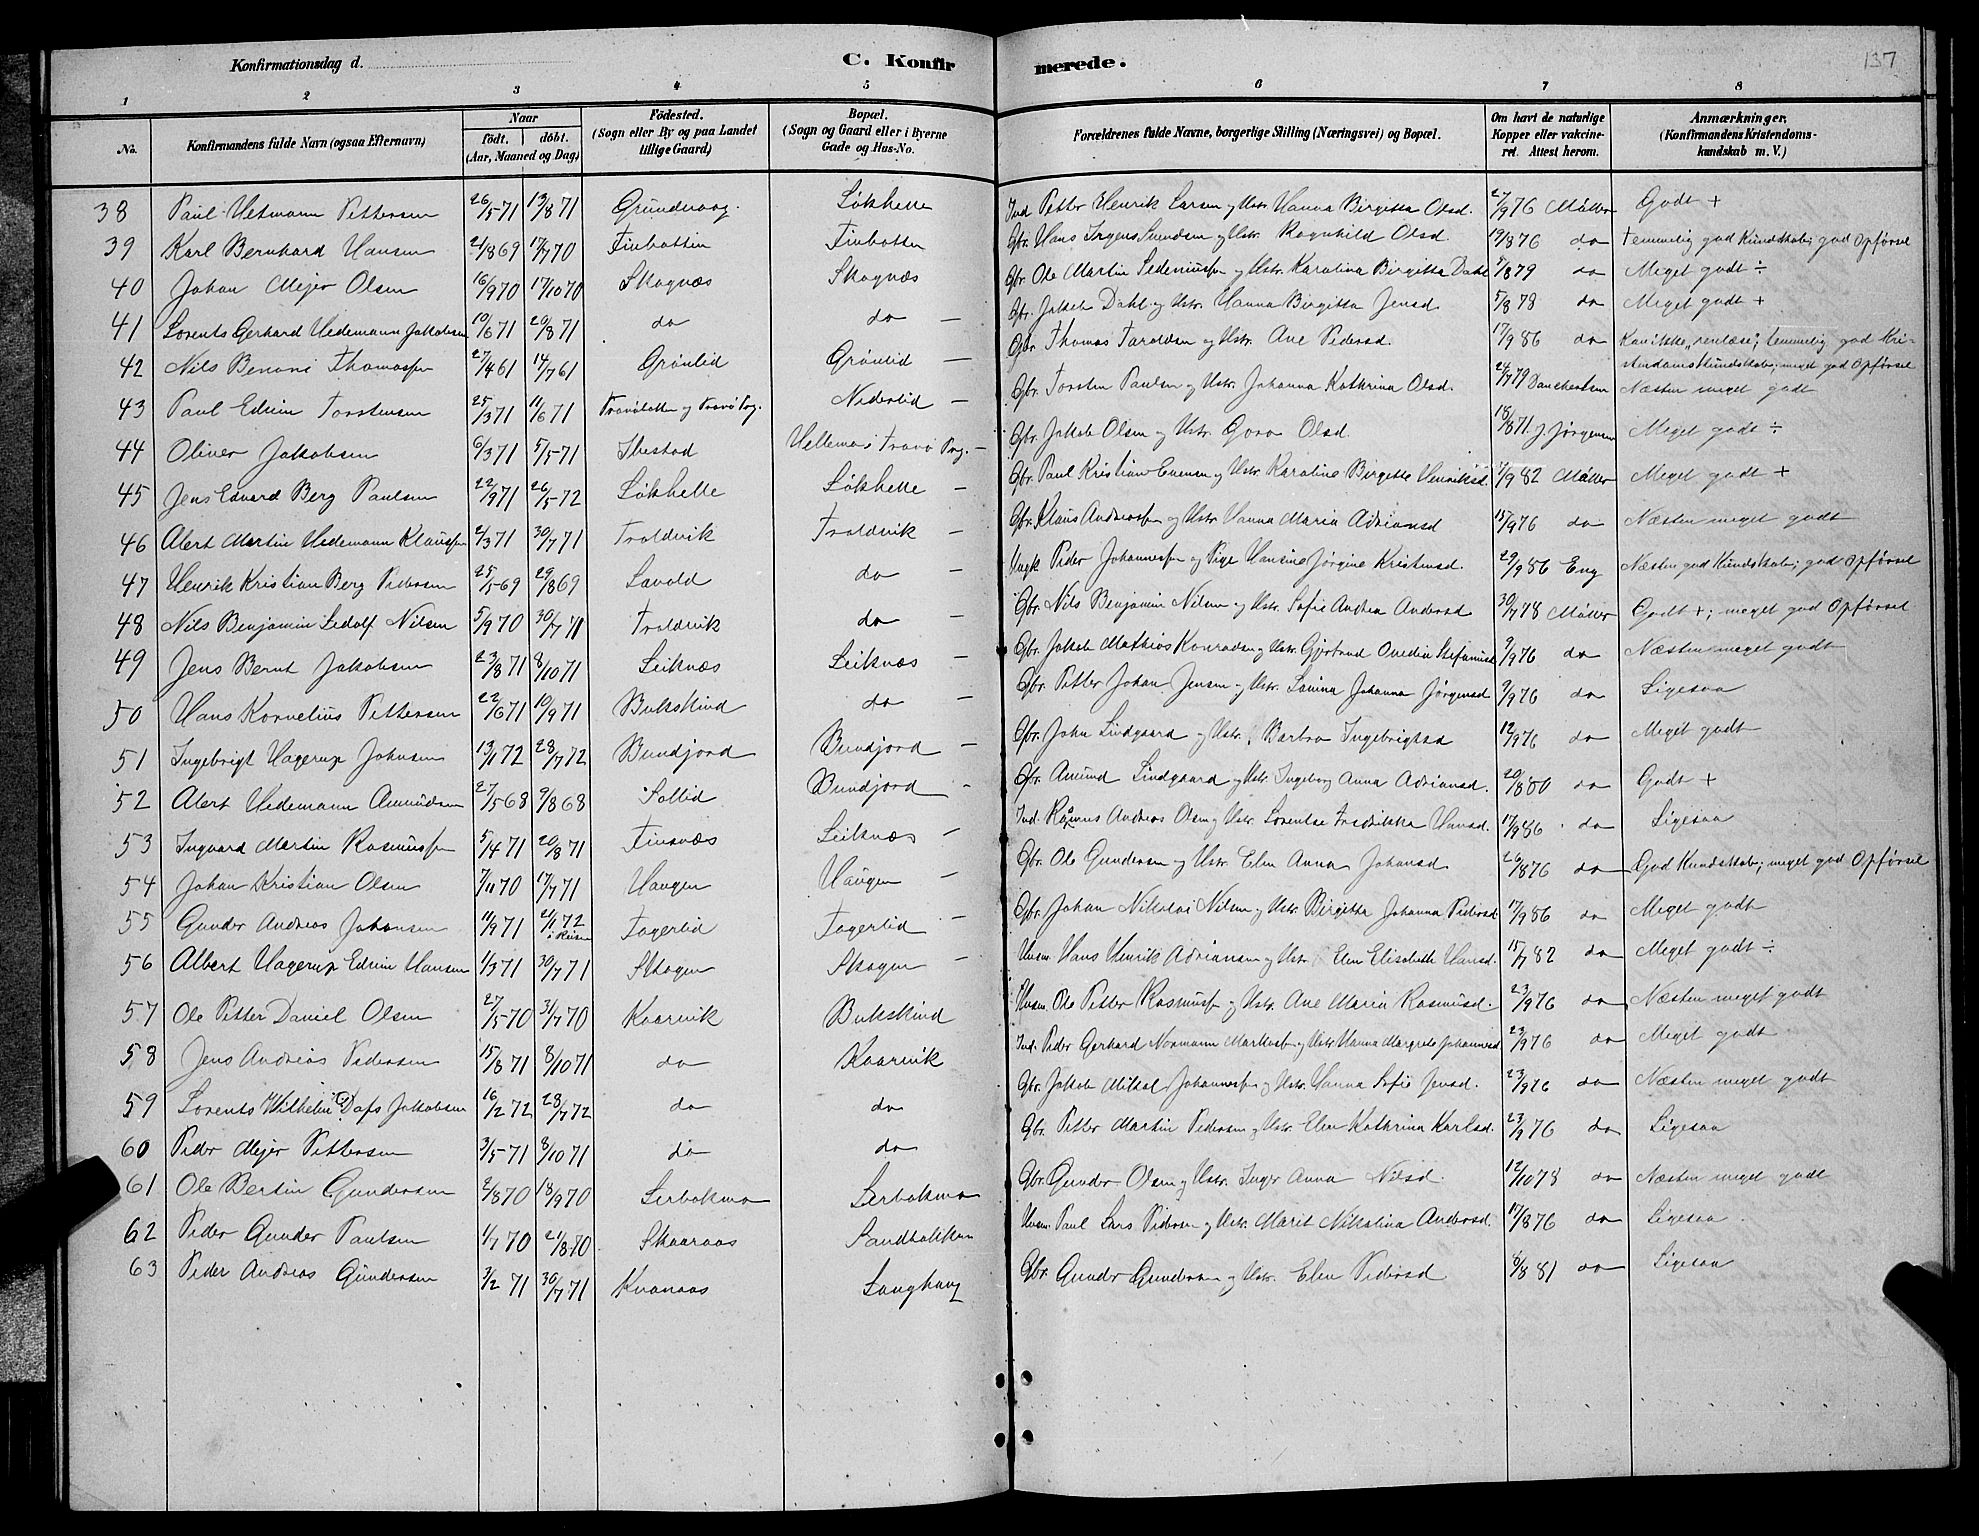 Konfirmationsdag d.
C. Konfir merede.
137
1 2 3 4 5 6 7 8
No. Konfirmandens fulde Navn (ogsaa Efternavn) Naar født. døbt. (Aar, Maaned og Dag) Fødested. (Sogn eller By og paa Landet tillige Gaard) Bopæl. (Sogn og Gaard eller i Byerne Gade og Hus-No. Forældrenes fulde Navne, borgerlige Stilling (Næringsvei) og Bopæl. Om havt de naturlige Kopper eller vakcineret. Attest herom. Anmærkninger. (Konfirmandens Kristendomskundskab m. V.)
38 Paul Hetmann Pettersen 26/5 71 13/8 71 Grundvaag Løkhelle Ind. Petter Henrik Larsen og Hstr. Hanna Birgitta Olsd. 27/9 76 Møller Godt +
39 Karl Bernhard Hansen 2/8 69 17/7 70 Finbotten Finbotten Gbr. Hans Irgens Simdsen og Hstr. Ragnhild Olsd. 19/8 76 do temmelig god Kundskab; god Opførsel
40 Johan Mejer Olsen 16/9 70 17/10 70 Skognæs Skognæs Gbr. Ole Martin Sedeniussen og Hstr. Karolina Birgitta Dahl 5/8 79 do Meget godt ÷
41 Lorents Gerhard Hedemann Jakobsen 10/6 71 20/8 71 do do — Gbr. Jakob Dahl og Hstr. Hanna Birgitta Jensd. 5/8 78 do Meget godt +
42 Nils Benoni Thomassen 27/4 61 14/7 61 Grønlid Grønlid — Gbr. Thomas Taraldsen og Hstr. Ane Pedersd. 17/9 86 do Kan ikke „renlæse; temmelig god Kristendomskundskab; meget god Opførsel
43 Paul Edvin Torstensen 25/3 71 11/6 71 Tranøbotten og Tranø Prg. Nederlid — Gbr. Torsten Paulsen og Hstr. Johanna Kathrina Olsd. 24/7 79 Danchertsen Næsten meget godt
44 Oliver Jakobsen 6/3 71 5/5 71 Ibestad Hellemo i Tranø Prg. — Gbr. Jakob Olsen og Hstr. Gora Olsd. 18/8 71 J. Jørgensen Meget godt ÷
45 Jens Edvard Berg Paulsen 22/9 71 26/5 72 Løkhelle Løkhelle — Gbr. Paul Kristian Evensen og Hstr. Karoline Birgitte Henriksd. 7/9 82 Møller Meget godt +
46 Alert Martin Hedemann Klaussen 2/3 71 30/7 71 Troldvik Troldvik — Gbr. Klaus Andreassen og Hstr. Hanna Maria Adriansd 15/9 76 do Næsten meget godt
47 Henrik Kristian Berg Pedersen 25/5 69 29/8 69 Lavold do — Ungk. Peder Johannessen og Pige Hansine Jørgine Kristensd. 29/9 86 Eng Næsten god Kundskab; god Opførsel
48 Nils Benjamin Sedolf Nilsen 5/9 70 30/7 71 Troldvik do — Gbr. Nils Benjamin Nilsen og Hstr. Sofie Andrea Andersd 30/7 78 Møller Godt +; meget god Opførsel
49 Jens Bernt Jakobsen 23/8 71 8/10 71 Leiknæs Leiknæs — Gbr. Jakob Mathias Konradsen og Hstr. Gjertrud Ovedia Stefansd 9/9 76 do Næsten meget godt
50 Hans Kornelius Pettersen 22/6 71 10/9 71 Bukskind do — Gbr. Petter Johan Jensen og Hstr. Lovina Johanna Jørgensd 9/9 76 do Ligesaa
51 Ingebrigt Hagerup Johnsen 13/1 72 28/7 72 Bundjord Bundjord — Gbr. John Lindgaard og Hstr. Barbro Ingebrigtsd 12/9 76 do Meget godt
52 Alert Hedemann Amundsen 27/5 68 9/8 68 Sollid Bundjord - Gbr. Amund Lindgaard og Hstr. Ingeborg Anna Adriansd. 20/8 80 do Godt +
53 Ingvard Martin Rasmussen 5/4 71 20/8 71 Finsnæs Leiknæs — Ind. Rasmus Andreas Olsen og Hstr. Lorentse Fredrikka Hansd. 17/9 86 do Ligesaa
54 Johan Kristian Olsen 7/11 70 17/7 71 Haugen Haugen — Gbr. Ole Gundersen og Hstr. Elen Anna Johansd 26/8 76 do God Kundskab; meget god Opførsel
55 Gunder Andreas Johansen 11/9 71 21/1 72 i Reisen Fagerlid Fagerlid — Gbr. Johan Nikolai Nilsen og Hstr. Birgitta Johanna Pedersd 17/9 86 do Meget godt
56 Albert Hagerup Edvin Hansen 1/3 71 30/7 71 Skogen Skogen — Husm. Hans Henrik Adriansen og Hstr. Elen Elisabeth Hansd. 15/7 82 do Meget godt ÷
57 Ole Petter Daniel Olsen 27/5 70 31/7 70 Kaarvik Bukskind Husm. Ole Petter Rasmussen og Hstr. Ane Maria Rasmusd. 23/9 76 do Næsten meget godt
58 Jens Andreas Pedersen 15/8 71 8/10 71 do Kaarvik Ind. Peder Gerhard Normann Markussen og Hstr. Hanna Margrete Johannesd 23/9 76 do Meget godt
59 Lorents Wilhelm Dass Jakobsen 16/2 72 28/7 72 do do Gbr. Jakob Mikal Johannessen og Hstr. Hanna Sofie Jensd. 23/9 76 do Næsten meget godt
60 Peder Mejer Pettersen 3/5 71 8/10 71 do do Gbr. Petter Martin Pedersen og Hstr. Elen Kathrina Karlsd. 23/9 76 do Ligesaa
61 Ole Bertin Gundersen 2/8 70 18/9 70 Lerbakmo Lerbakmo Gbr. Gunder Olsen og Hstr. Inger Anna Nilsd. 12/10 78 do Næsten meget godt
62 Peder Gunder Paulsen 1/7 70 21/8 70 Skaaraas Sandbakken Husm. Paul Lars Pedersen og Hstr. Marit Nikolina Andersd. 17/8 76 do Ligesaa
63 Peder Andreas Gundersen 3/2 71 30/7 71 Kvanaas Langhaug Gbr. Gunder Gundersen og Hstr. Elen Pedersd 6/8 81 do Ligesaa